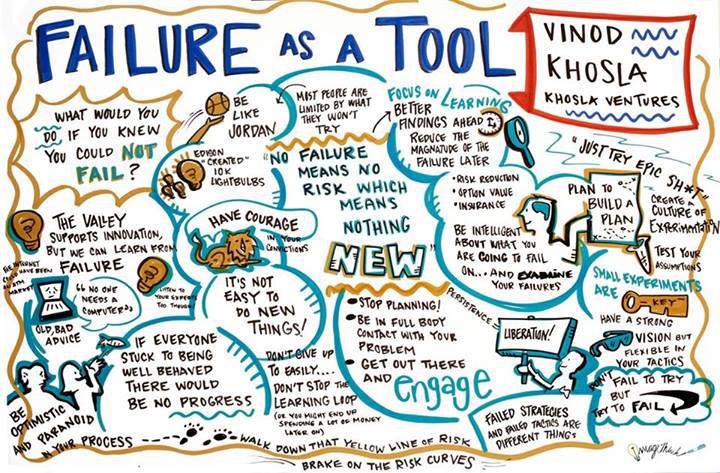 FAILURE AS A TOOL
VINOD
KHOSLA
KHOSLA VENTURES
WHAT WOULD YOU
DO IF YOU KNEW
YOU COULD NOT
FAIL?
BE
LIKE
JORDAN
EDISON
"CREATED"
10K
LIGHTBULBS
MOST PEOPLE ARE
LIMITED BY WHAT
THEY WON'T
TRY
"NO FAILURE
MEANS NO
RISK WHICH
MEANS
NOTHING
NEW"
FOCUS ON LEARNING
BETTER
FINDINGS AHEAD
REDUCE THE
MAGNATUDE OF THE
FAILURE LATER
• RISK REDUCTION
• OPTION VALUE
• INSURANCE
BE INTELLIGENT
ABOUT WHAT YOU
ARE GOING TO FAIL
ON... AND EXAMINE
YOUR FAILURES
"JUST TRY EPIC SH*T"
PLAN TO
BUILD A
PLAN
CREATE A
CULTURE OF
EXPERIMENTATION
TEST YOUR
ASSUMPTIONS
SMALL EXPERIMENTS
ARE
KEY
HAVE A STRONG
VISION BUT
FLEXIBLE IN
YOUR TACTICS
DON'T FAIL TO TRY
BUT
TRY TO FAIL
THE VALLEY
SUPPORTS INNOVATION,
BUT WE CAN LEARN FROM
FAILURE
THE INTERNET
COULD HAVE BEEN
AN ATM
MARKET
"NO ONE
NEEDS A
COMPUTER"
OLD, BAD
ADVICE
LISTEN TO
YOUR EXPERTS
TOO THOUGH!
HAVE COURAGE
IN YOUR
CONVICTIONS
IT'S NOT
EASY TO
DO NEW
THINGS!
IF EVERYONE
STUCK TO BEING
WELL BEHAVED
THERE WOULD
BE NO PROGRESS
DON'T GIVE UP
TO EASILY....
DON'T STOP THE
LEARNING LOOP
(OR YOU MIGHT END UP
SPENDING A LOT OF MONEY
LATER ON)
• STOP PLANNING!
• BE IN FULL BODY
CONTACT WITH YOUR
PROBLEM
• GET OUT THERE
AND engage
PERSISTENCE =
LIBERATION!
FAILED STRATEGIES
AND FAILED TACTICS ARE
DIFFERENT THINGS
BE
OPTIMISTIC
AND PARANOID
IN YOUR PROCESS
WALK DOWN THAT YELLOW LINE OF RISK
BRAKE ON THE RISK CURVES
ImageThink